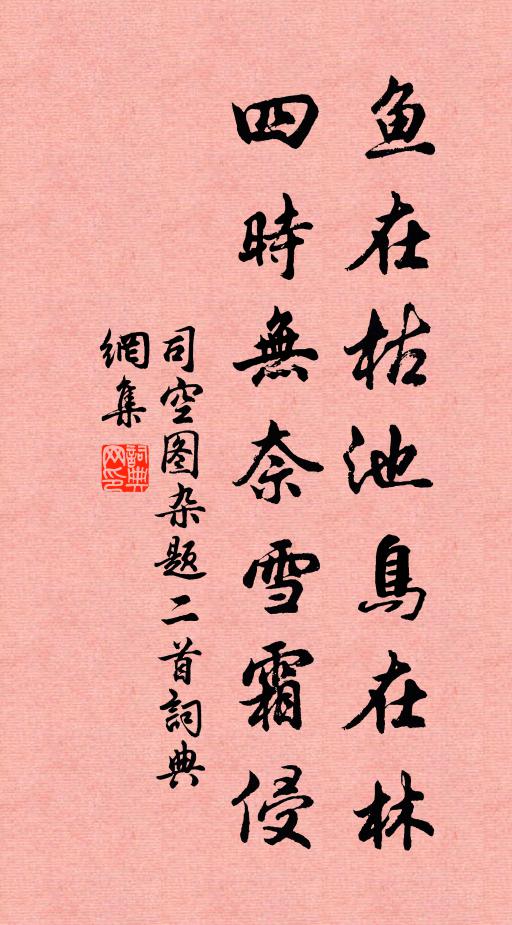 鱼在枯池鳥在林
四時無奈雪霜侵
司空图杂题二首詞典
網集
詞典
网印